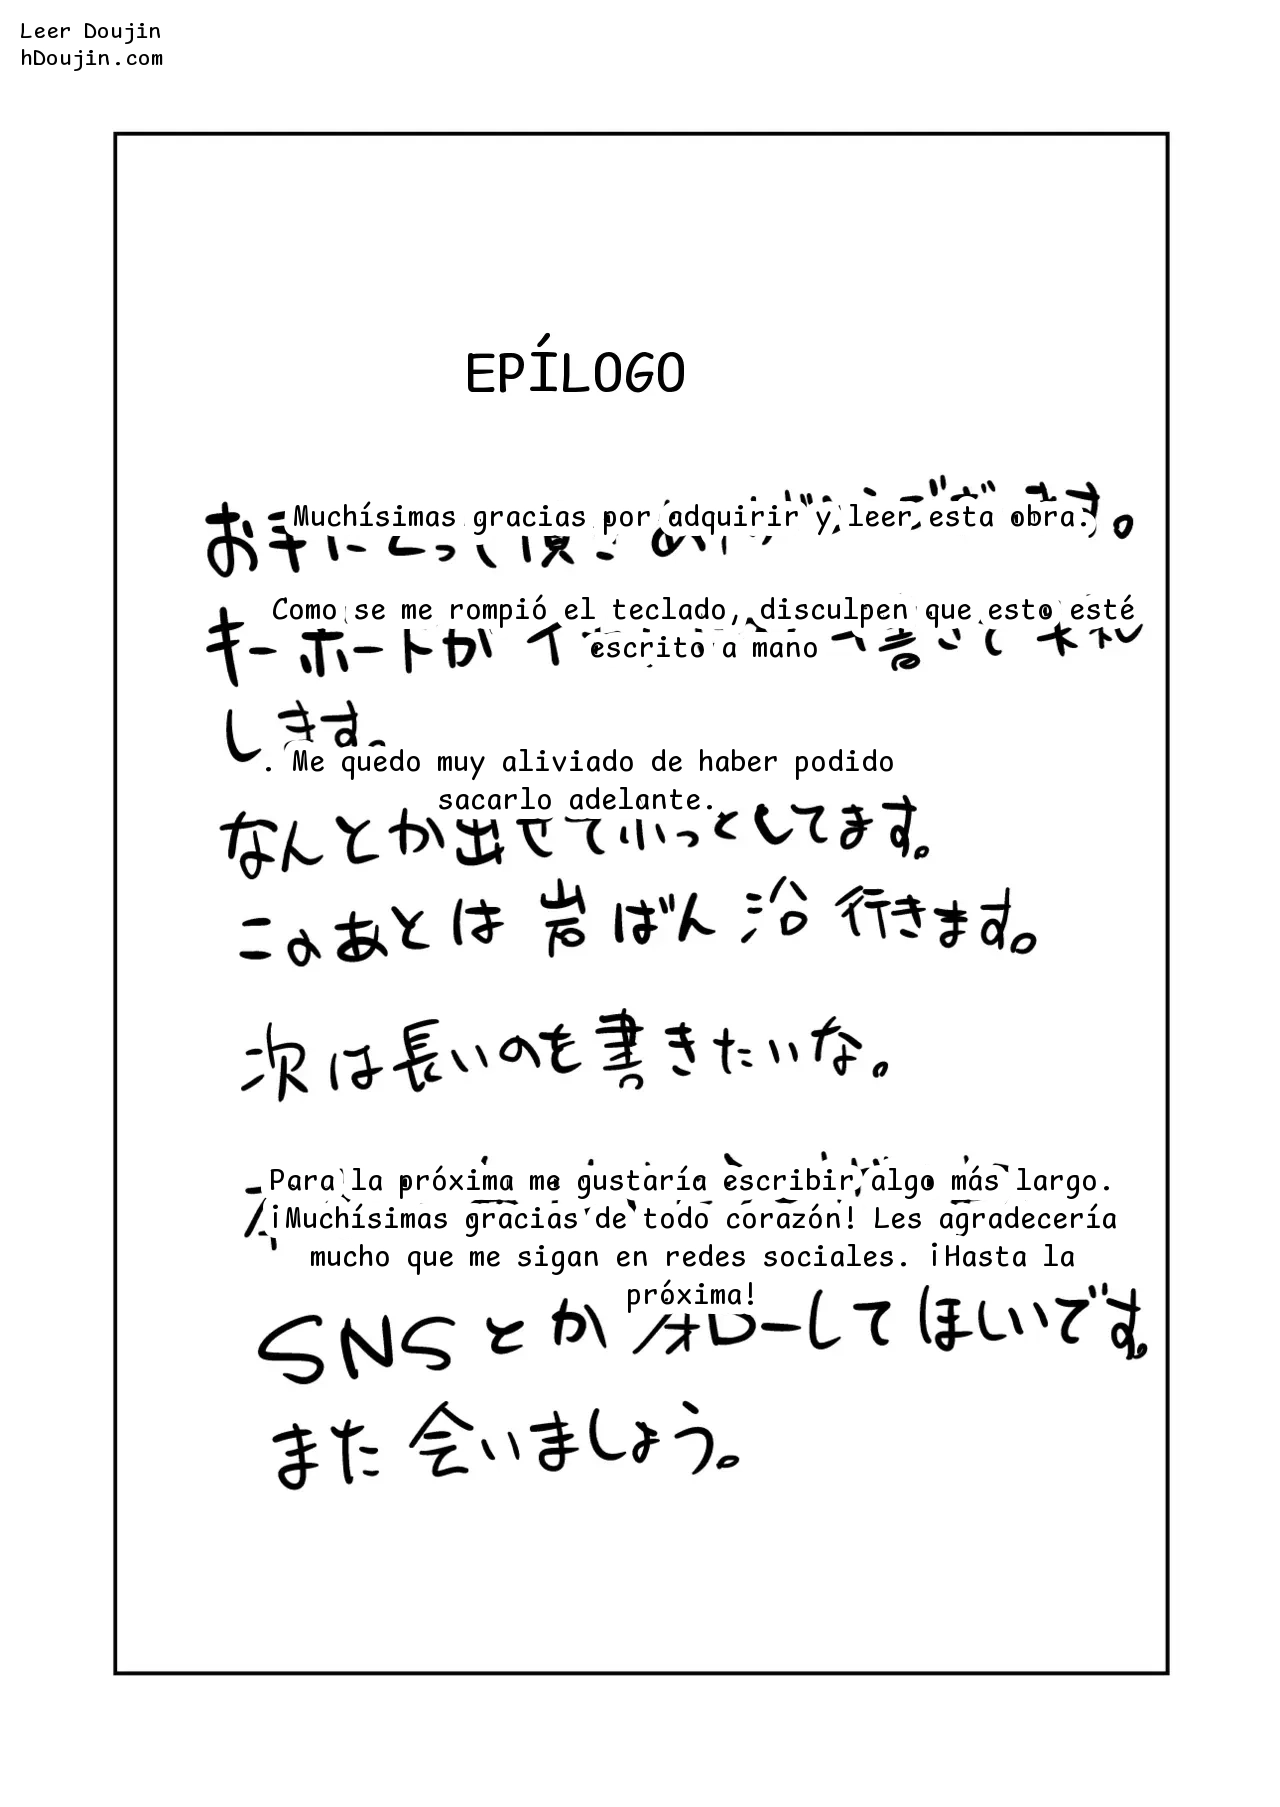 Leer Doujin
hDoujin.com
EPÍLOGO
お手にとって頂き
Muchísimas gracias por adquirir y leer esta obra.
す。
Como se me rompió el teclado, disculpen que esto esté
キーボードが
escrito a mano
します。
. Me quedo muy aliviado de haber podido
sacarlo adelante.
なんとか出せてホッとしてます。
このあとは岩ばん浴行きます。
次は長いのを書きたいな。
Para la próxima me gustaría escribir algo más largo.
¡Muchísimas gracias de todo corazón! Les agradecería
mucho que me sigan en redes sociales. ¡Hasta la
próxima!
SNSとかフォローしてほしいです。
また会いましょう。